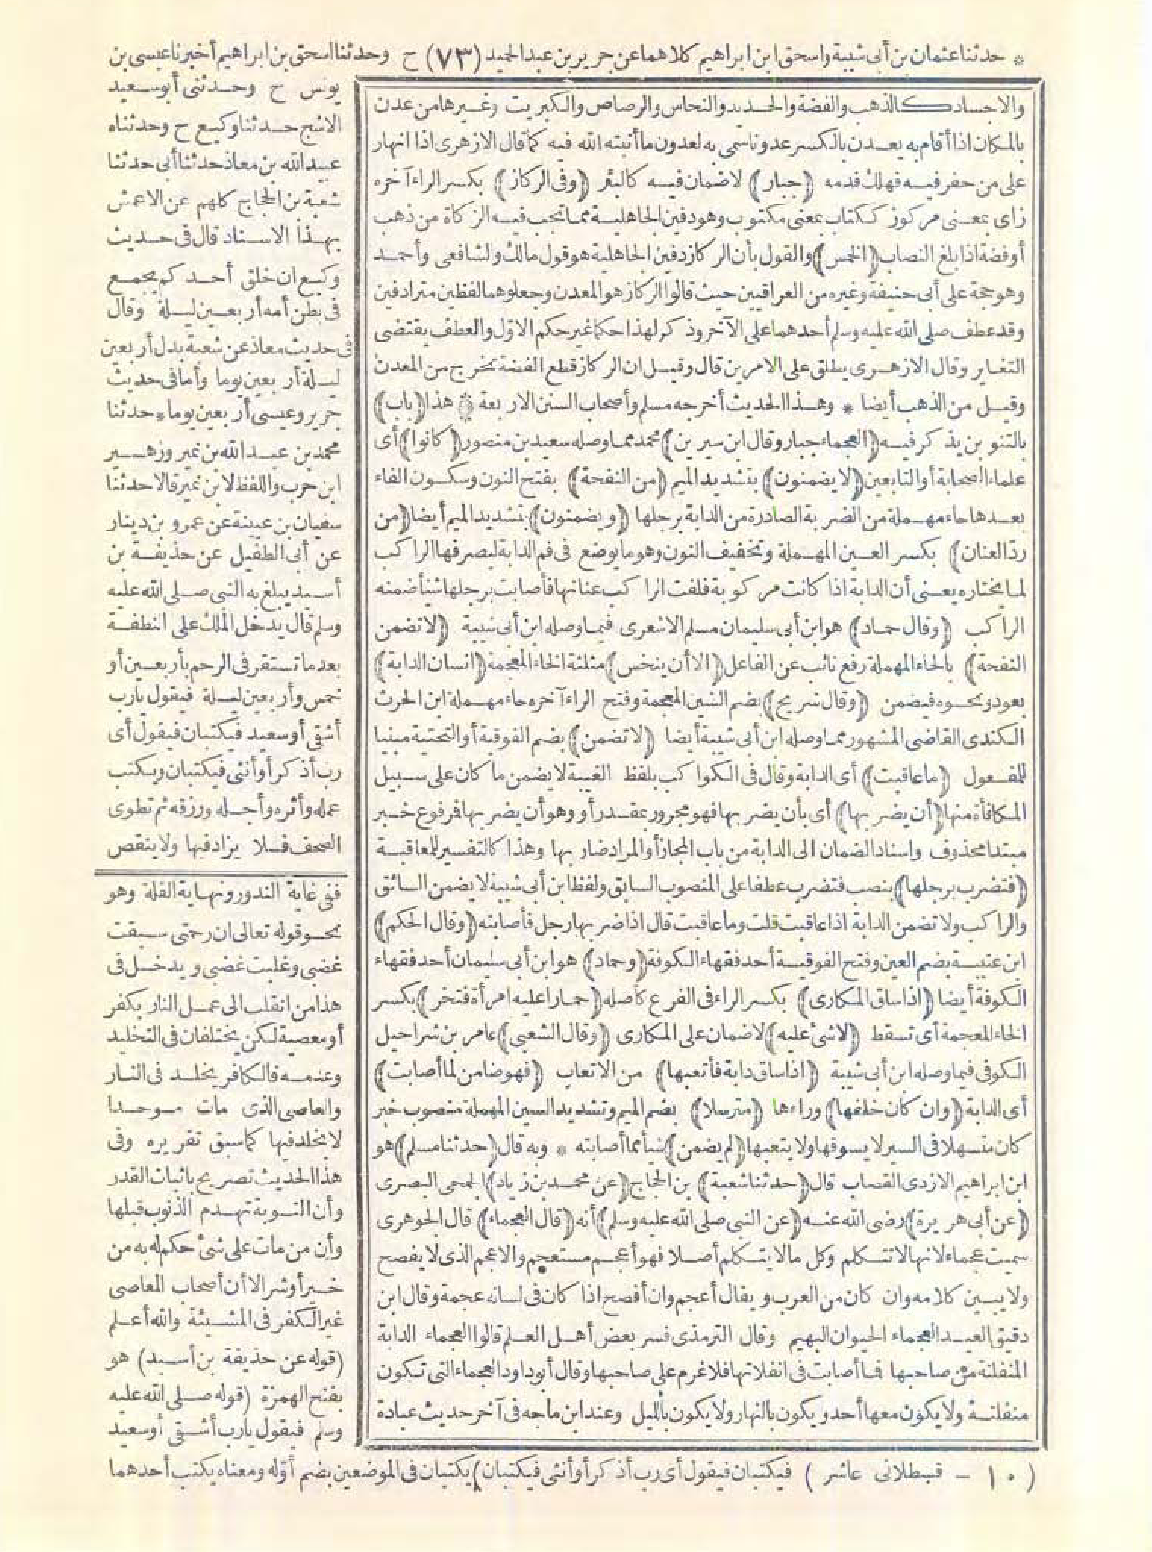 * حدثنا عثمان بن أبى شيبة واسحق ابن ابراهيم كلاهما عن جرير بن عبد الحميد (٧٣) ح وحدثنا اسحق بن ابراهيم أخبرنا عيسى بن
والاجساد كالذهب والفضة والحديد والنحاس والرصاص والكبريت وغيرها من عدن
بالمكان اذا أقام به يعدن بالكسر عدونا سمى به لعدون ما أنبته الله فيه كما قال الازهرى اذا انهار
على من حفر فيه فهلك فدمه (جبار) لا ضمان فيه كالبئر (وفى الركاز) بكسر الراء آخره
زاى بمعنى مركوز ككتاب بمعنى مكتوب وهو دفين الجاهلية مما تجب فيه الزكاة من ذهب
أو فضة اذا بلغ النصاب (الخمس) والقول بأن الركاز دفين الجاهلية هو قول مالك والشافعى وأحمد
وهو حجة على أبى حنيفة وغيره من العراقيين حيث قالوا الركاز هو المعدن وجعلوهما لفظين مترادفين
وقد عطف صلى الله عليه وسلم أحدهما على الآخر وذكر لهذا حكما غير حكم الاول والعطف يقتضى
التغاير وقال الازهرى يطلق على الامرين قال وقيل ان الركاز قطع الفضة تخرج من المعدن
وقيل من الذهب أيضا * وهذا الحديث أخرجه مسلم وأصحاب السنن الاربعة * هذا (باب)
بالتنوين يذكر فيه (العجماء جبار وقال ابن سيرين) محمد مما وصله سعيد بن منصور (كانوا) أى
علماء الصحابة أو التابعين (لا يضمنون) بتشديد الميم (من النفحة) بفتح النون وسكون الفاء
بعدها حاء مهملة من الضربة الصادرة من الدابة برجلها (ويضمنون) بتشديد الميم أيضا (من
رد العنان) بكسر العين المهملة وتخفيف النون وهو ما يوضع فى فم الدابة ليصرفها الراكب
لما يختاره يعنى أن الدابة اذا كانت مركوبة فلفت الراكب عنانها فأصابت برجلها شيأ ضمنه
الراكب (وقال حماد) هو ابن أبى سليمان مسلم الاشعرى فيما وصله ابن أبى شيبة (لا تضمن
النفحة) بالحاء المهملة رفع نائب عن الفاعل (الا أن ينخس) مثلثة الخاء المعجمة (انسان الدابة)
بعود ونحوه فيضمن (وقال شريح) بضم الشين المعجمة وفتح الراء آخره حاء مهملة ابن الحرث
الكندى القاضى المشهور مما وصله ابن أبى شيبة أيضا (لا تضمن) بضم الفوقية أو التحتية مبنيا
للمفعول (ما عاقبت) أى الدابة وقال فى الكواكب بلفظ الغيبة لا يضمن ما كان على سبيل
المكافأة منها (أن يضربها) أى بأن يضربها فهو مجرور بمقدر أو وهو أن يضربها فرفوع خبر
مبتدا محذوف واسناد الضمان الى الدابة من باب المجاز أو المراد ضاربها وهذا كالتفسير للمعاقبة
(فتضرب برجلها) بنصب فتضرب عطفا على المنصوب السابق ولفظ ابن أبى شيبة لا يضمن السائق
والراكب ولا تضمن الدابة اذا عاقبت قلت وما عاقبت قال اذا ضربها رجل فأصابته (وقال الحكم)
ابن عتيبة بضم العين وفتح الفوقية أحد فقهاء الكوفة (وحماد) هو ابن أبى سليمان أحد فقهاء
الكوفة أيضا (اذا ساق المكارى) بكسر الراء فى الفرع كأصله (حمارا عليه امرأة فتخر) بكسر
الخاء المعجمة أى تسقط (لا شئ عليه) لا ضمان على المكارى (وقال الشعبى) عامر بن شراحيل
الكوفى فيما وصله ابن أبى شيبة (اذا ساق دابة فأتعبها) من الاتعاب (فهو ضامن لما أصابت)
أى الدابة (وان كان خلفها) وراءها (مترسلا) بضم الميم وتشديد السين المهملة منصوب خبر
كان متسهلا فى السير لا يسوقها ولا يتعبها (لم يضمن) شيأ مما أصابته * وبه قال (حدثنا مسلم) هو
ابن ابراهيم الازدى القصاب قال (حدثنا شعبة) بن الحجاج (عن محمد بن زياد) الجمحى البصرى
(عن أبى هريرة) رضى الله عنه (عن النبى صلى الله عليه وسلم) أنه (قال العجماء) قال الجوهرى
سميت عجماء لانها لا تتكلم وكل ما لا يتكلم أصلا فهو أعجم مستعجم والاعجم الذى لا يفصح
ولا يبين كلامه وان كان من العرب ويقال أعجم وان أفصح اذا كان فى لسانه عجمة وقال ابن
دقيق العيد العجماء الحيوان البهيم وقال الترمذى فسر بعض أهل العلم قالوا العجماء الدابة
المنفلتة من صاحبها فما أصابت فى انفلاتها فلا غرم على صاحبها وقال أبو داود العجماء التى تكون
منفلتة ولا يكون معها أحد ويكون بالنهار ولا يكون بالليل وعند ابن ماجه فى آخر حديث عبادة
يونس ح وحدثنى أبو سعيد
الاشج حدثنا وكيع ح وحدثناه
عبيد الله بن معاذ حدثنا أبى حدثنا
شعبة بن الحجاج كلهم عن الاعمش
بهذا الاسناد قال فى حديث
وكيع ان خلق أحدكم يجمع
فى بطن أمه أربعين ليلة وقال
فى حديث معاذ عن شعبة بدل أربعين
ليلة أربعين يوما وأما فى حديث
جرير وعيسى أربعين يوما * حدثنا
محمد بن عبد الله بن نمير وزهير
ابن حرب واللفظ لابن نمير قالا حدثنا
سفيان بن عيينة عن عمرو بن دينار
عن أبى الطفيل عن حذيفة بن
أسيد يبلغ به النبى صلى الله عليه
وسلم قال يدخل الملك على النطفة
بعد ما تستقر فى الرحم بأربعين أو
خمس وأربعين ليلة فيقول يا رب
أشقى أو سعيد فيكتبان فيقول أى
رب أذكر أو أنثى فيكتبان ويكتب
عمله وأثره وأجله ورزقه ثم تطوى
الصحف فلا يزاد فيها ولا ينقص
فى غاية الندور ونهاية القلة وهو
نحو قوله تعالى ان رحمتى سبقت
غضبى وغلبت غضبى ويدخل فى
هذا من انقلب الى عمل النار بكفر
أو معصية لكن يختلفان فى التخليد
وعدمه فالكافر يخلد فى النار
والعاصى الذى مات موحدا
لا يخلد فيها كما سبق تقريره وفى
هذا الحديث تصريح باثبات القدر
وأن التوبة تهدم الذنوب قبلها
وأن من مات على شئ حكم له به من
خير أو شر الا أن أصحاب المعاصى
غير الكفر فى المشيئة والله أعلم
(قوله عن حذيفة بن أسيد) هو
بفتح الهمزة (قوله صلى الله عليه
وسلم فيقول يا رب أشقى أو سعيد
(١٠ - قسطلانى عاشر) فيكتبان فيقول أى رب أذكر أو أنثى فيكتبان) يكتبان فى الموضعين بضم أوله ومعناه يكتب أحدهما